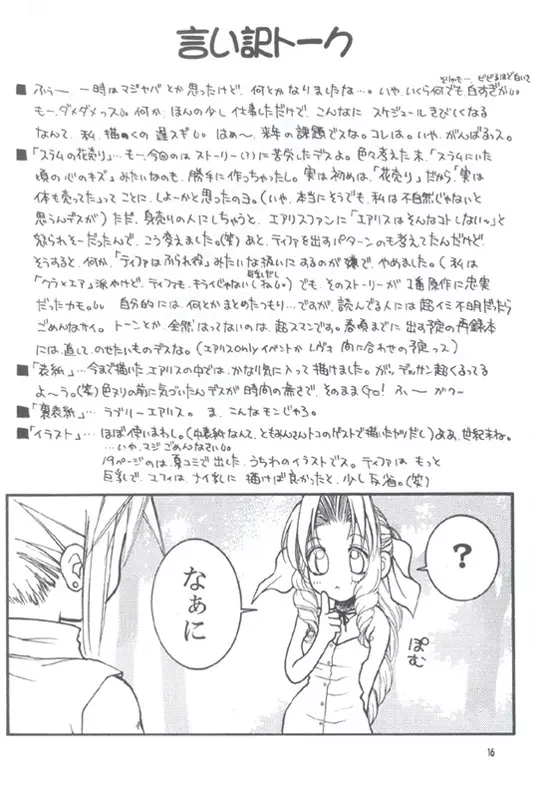 言い訳トーク
■ふぅー、一時はマジヤバとか思ったけど、何とかなりましたな…。いや、いくら何でも白すぎが
も一、ダメダメっス。何か、ほんの少し仕事しただけで、こんなに スケジュールきびしくなる
なんて、私、描くの 遅スギ はぁ〜、来年の課題でスな。コレは。いや、がんばるっス。
■「スラムの花売り」…も一、今回のは ストーリー(?)に苦労したデスよ。色々考えた末、「スラムにいた
頃の心のキズ」みたいなのも、勝手に作っちゃったし。実は初めは、「花売り」だから「実は
体も売ってた」ってことに、しよーかと思ったのヨ。(いや、本当にそうでも、私は不自然じゃないと
思うんデスが)ただ、身売りの人にしちゃうと、エアリスファンに「エアリスはそんなコトしないっ」と
怒られそーだったんで、こう考えました。(笑)あと、ティファを出すパターンのも考えてたんだけど、
そうすると、何か、「ティファはふられ役」みたいな扱いにするのが嫌で、やめました。(私は
「クラ×エア」派やけど、ティファも、キライじゃない(しね))でも、そのストーリーが1番原作に忠実
だったカモ。自分的には、何とかまとめたつもり…ですが、読んでる人には超イミ不明だったら
ごめんなサイ。トーンとか、全然はってないのは、超スマンです。春頃までに 出す予定の再録本
には、直して、のせたいものデスな。(エアリスonlyイベントか レヴォ 間に合わせの予定っス)
■「表紙」…今まで描いたエアリスの中では、かなり気に入って描けました。が、デッサン超くるってる
よ〜う。(笑)色ヌリの前に気づいたんデスが時間の高さで、そのままGO! ふぃー
■「裏表紙」… ラブリーエアリス。ま、こんなモンじゃろ。
■「イラスト」… ほぼ使いまわし。(中表紙なんて、ともみんさんトコのゲストで描いたヤツだし)ああ、世紀末ね。
…いや、マジごめんなさい
19ページのは、夏コミで出した、うちわのイラストでス。ティファは もっと
巨乳で、ユフィは、ナイ乳に 描けば良かったと、少し反省。(笑)
?
なぁに
ぽむ
16